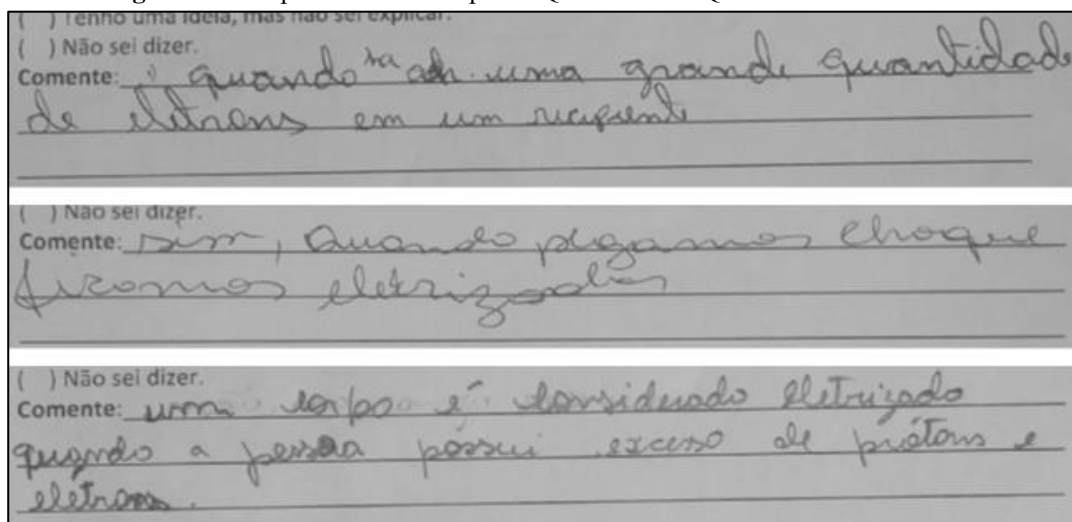 ( ) Tenho uma ideia, mas não sei explicar.
( ) Não sei dizer.
Comente: quando há uma grande quantidade
de eletrons em um recipiente
( ) Não sei dizer.
Comente: Sim, Quando pegamos choque
ficamos eletrizados
( ) Não sei dizer.
Comente: um corpo é considerado eletrizado
quando a pessoa possui excesso de prótons e
eletrons.